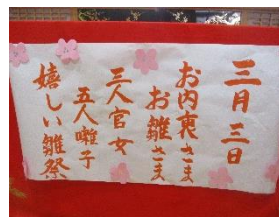 三月三日
お内裏さま
お雛さま
三人官女
五人囃子
嬉しい雛祭